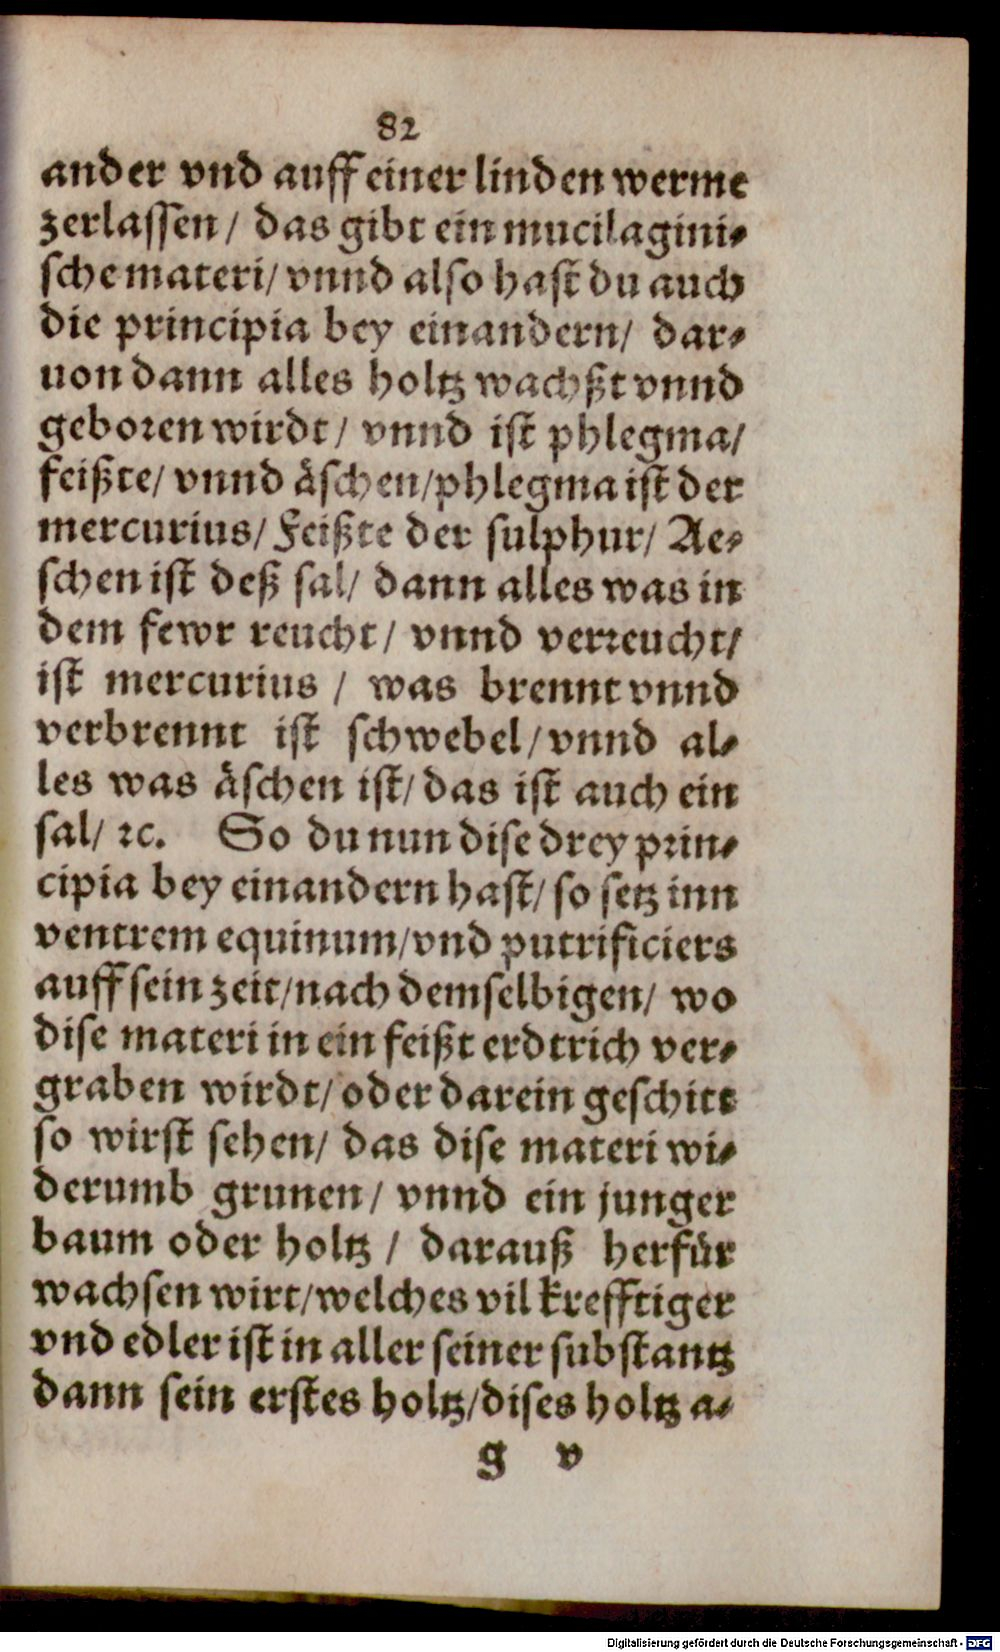 82
ander vnd auff einer linden werme
zerlassen / das gibt ein mucilagini⸗
sche materi / vnnd also hast du auch
die principia bey einandern / dar⸗
uon dann alles holtz wachßt vnnd
geboren wirdt / vnnd ist phlegma /
feißte / vnnd äschen / phlegma ist der
mercurius / Feißte der sulphur / Ae⸗
schen ist deß sal / dann alles was in
dem fewr reucht / vnnd verreucht /
ist mercurius / was brennt vnnd
verbrennt ist schwebel / vnnd al⸗
les was äschen ist / das ist auch ein
sal / ꝛc. So du nun dise drey prin⸗
cipia bey einandern hast / so setz inn
ventrem equinum / vnd putrificiers
auff sein zeit / nach demselbigen / wo
dise materi in ein feißt erdtrich ver⸗
graben wirdt / oder darein geschitt
so wirst sehen / das dise materi wi⸗
derumb grunen / vnnd ein junger
baum oder holtz / darauß herfür
wachsen wirt / welches vil krefftiger
vnd edler ist in aller seiner substantz
dann sein erstes holtz / dises holtz a⸗
g v
Digitalisierung gefördert durch die Deutsche Forschungsgemeinschaft - DFG